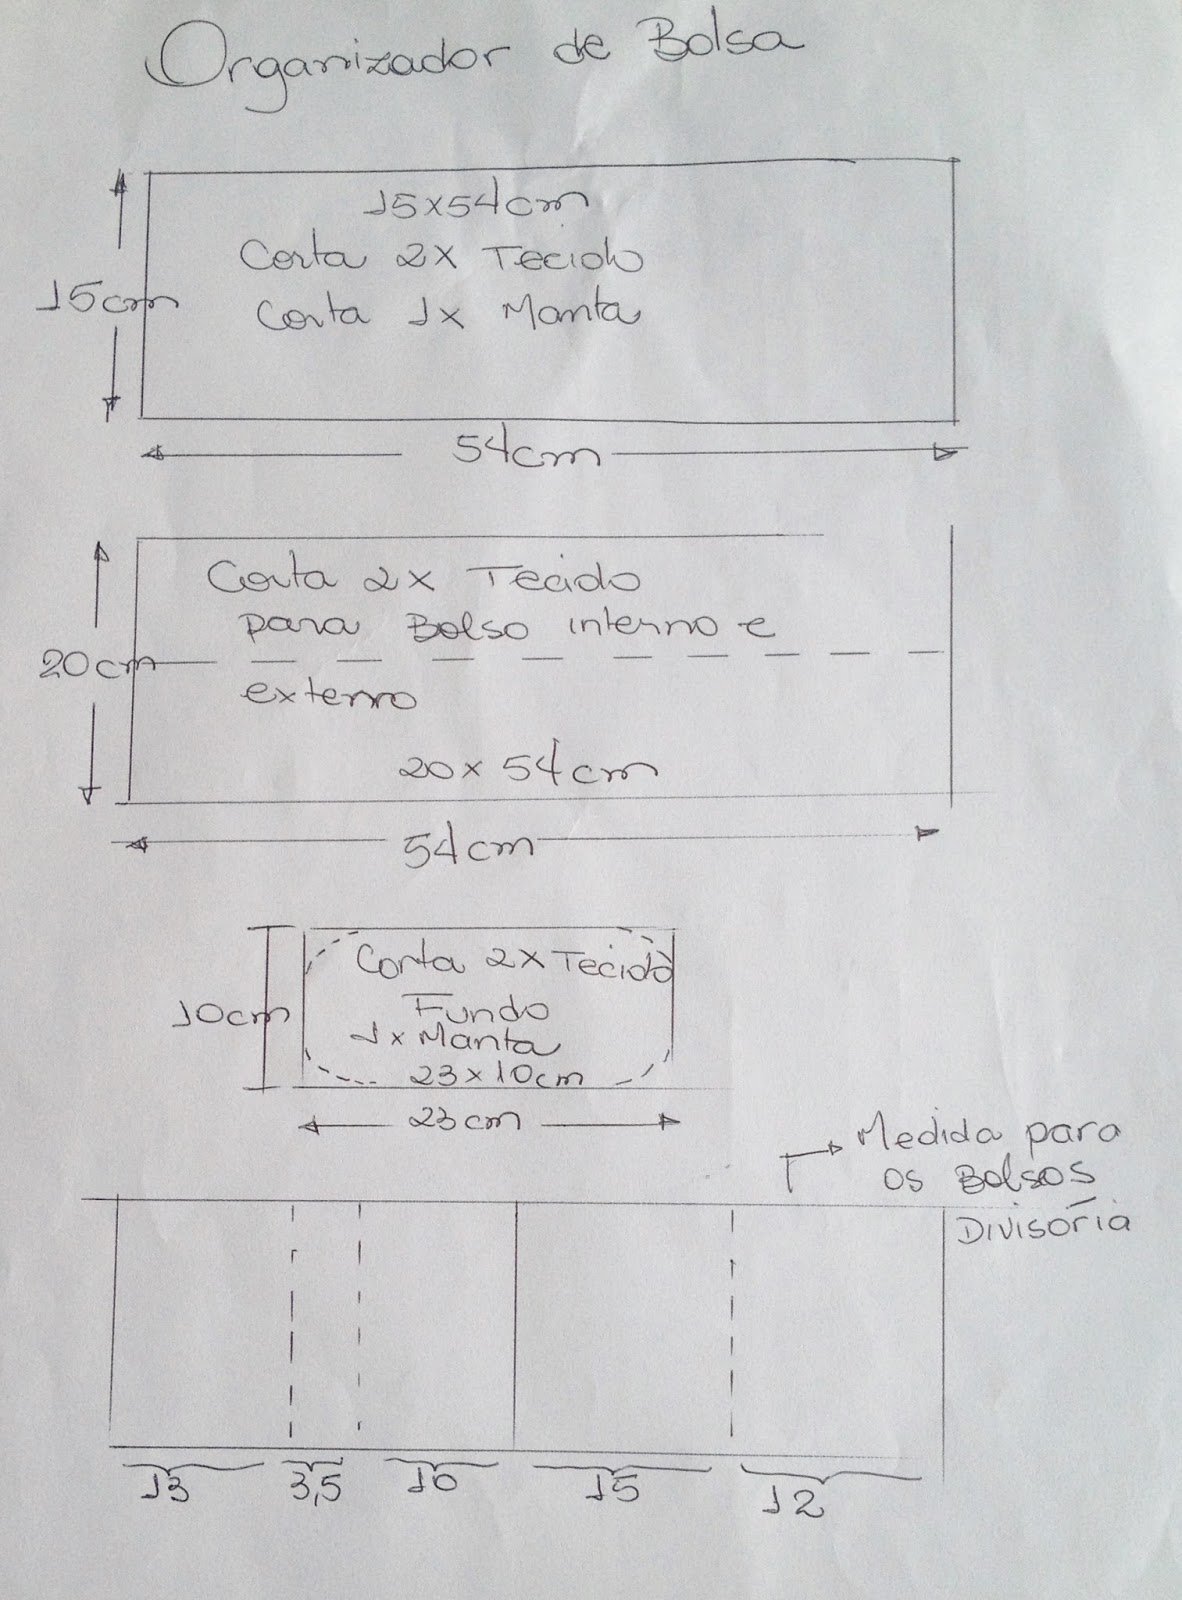 Organizador de Bolsa
15x54cm
Corta 2x Tecido
15cm
Corta 1x Manta
54cm
Corta 2x Tecido
para Bolso interno e
20cm
externo
20x54cm
54cm
Corta 2x Tecido
10cm
Fundo
1x Manta
23x10cm
23cm
Medida para
os Bolsos
Divisória
13 3,5 10 15 12